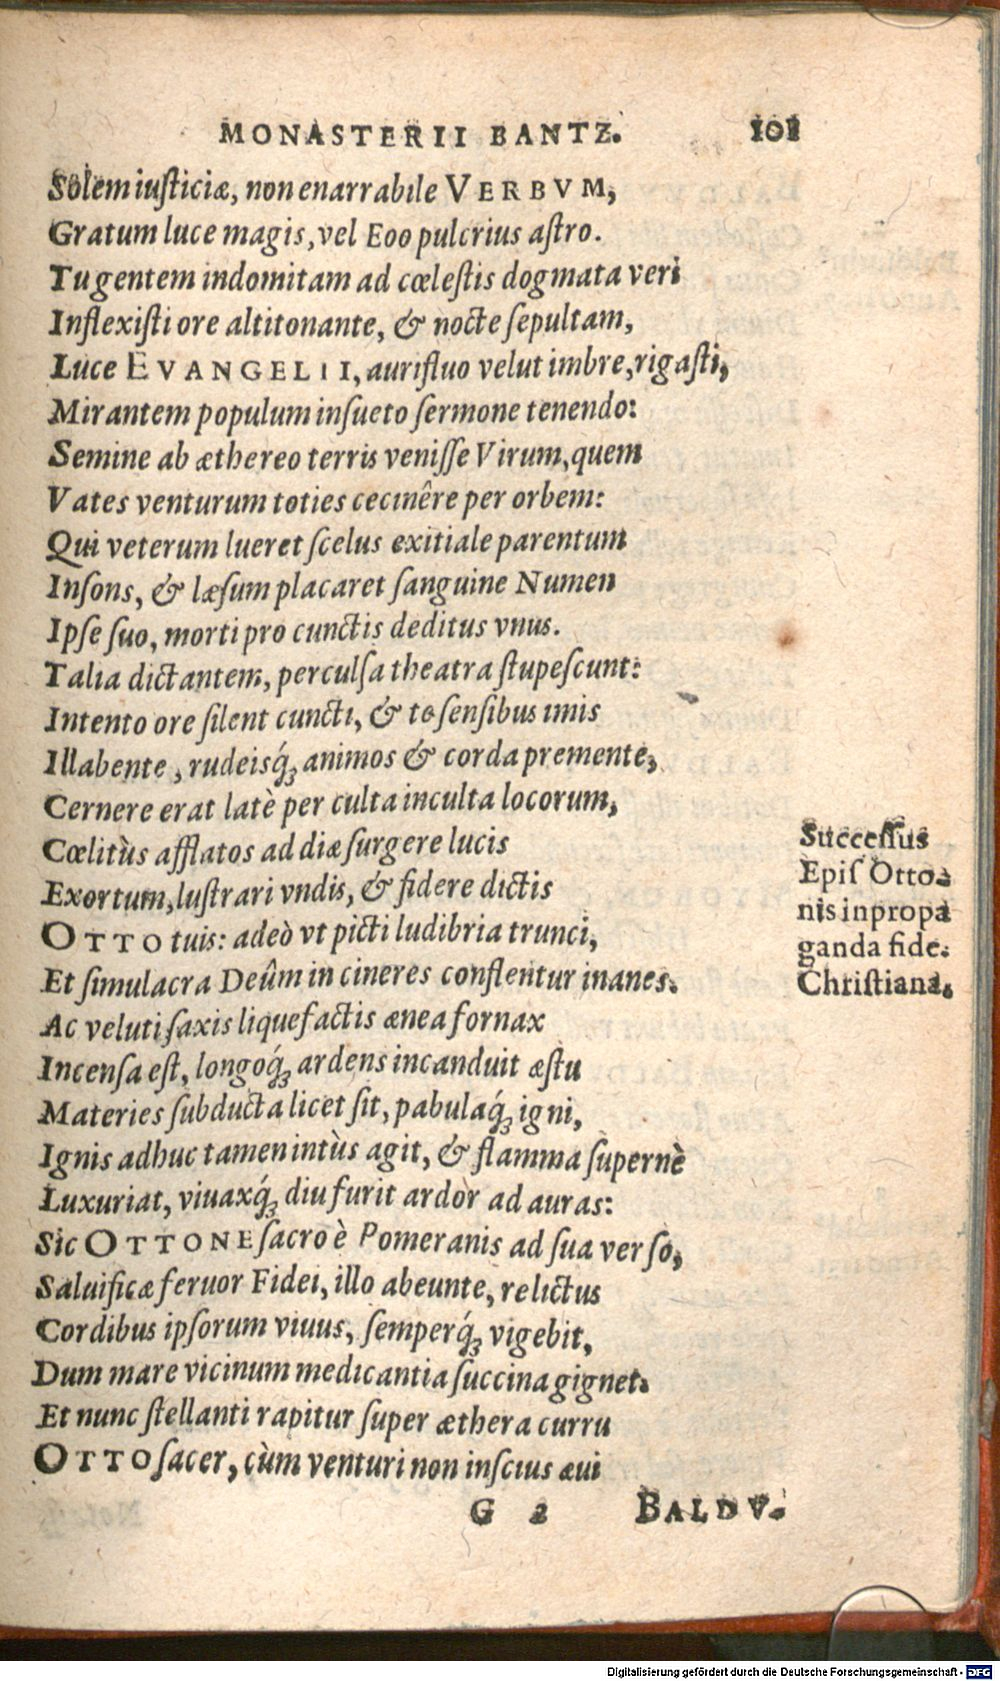 MONASTERII BANTZ. 101
Solem iusticiæ, non enarrabile VERBVM,
Gratum luce magis, vel Eoo pulcrius astro.
Tu gentem indomitam ad cœlestis dogmata veri
Inflexisti ore altitonante, & nocte sepultam,
Luce EVANGELII, aurifluo velut imbre, rigasti,
Mirantem populum insueto sermone tenendo:
Semine ab æthereo terris venisse Virum, quem
Vates venturum toties cecinêre per orbem:
Qui veterum lueret scelus exitiale parentum
Insons, & læsum placaret sanguine Numen
Ipse suo, morti pro cunctis deditus vnus.
Talia dictantem, perculsa theatra stupescunt:
Intento ore silent cuncti, & te sensibus imis
Illabente, rudeisq́; animos & corda premente,
Cernere erat latè per culta inculta locorum,
Cœlitùs afflatos ad diæ surgere lucis
Exortum, lustrari vndis, & fidere dictis
OTTO tuis: adeò vt picti ludibria trunci,
Et simulacra Deûm in cineres conflentur inanes.
Ac veluti saxis liquefactis ænea fornax
Incensa est, longoq́; ardens incanduit æstu
Materies subducta licet sit, pabulaq́; igni,
Ignis adhuc tamen intùs agit, & flamma supernè
Luxuriat, viuaxq́; diu furit ardor ad auras:
Sic OTTONE sacro è Pomeranis ad sua verso,
Saluificæ feruor Fidei, illo abeunte, relictus
Cordibus ipsorum viuus, semperq́; vigebit,
Dum mare vicinum medicantia succina gignet.
Et nunc stellanti rapitur super æthera curru
OTTO sacer, cùm venturi non inscius æui
G 2 BALDV.
Successus
Epis Otto-
nis in propa
ganda fide.
Christiana.
Digitalisierung gefördert durch die Deutsche Forschungsgemeinschaft - DFG